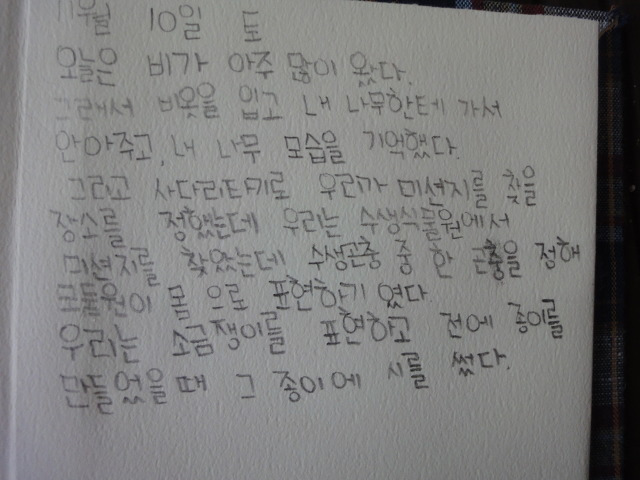 11월 10일 토
오늘은 비가 아주 많이 왔다.
그래서 비옷을 입고 내 나무한테 가서
안아주고, 내 나무 모습을 기억했다.
그리고 사다리타기로 우리가 미션지를 찾을
장소를 정했는데 우리는 수생식물원에서
미션지를 찾았는데 수생곤충 중 한 곤충을 정해
모둠원이 몸으로 표현하기 였다
우리는 소금쟁이를 표현하고 전에 종이를
만들었을 때 그 종이에 시를 썼다.